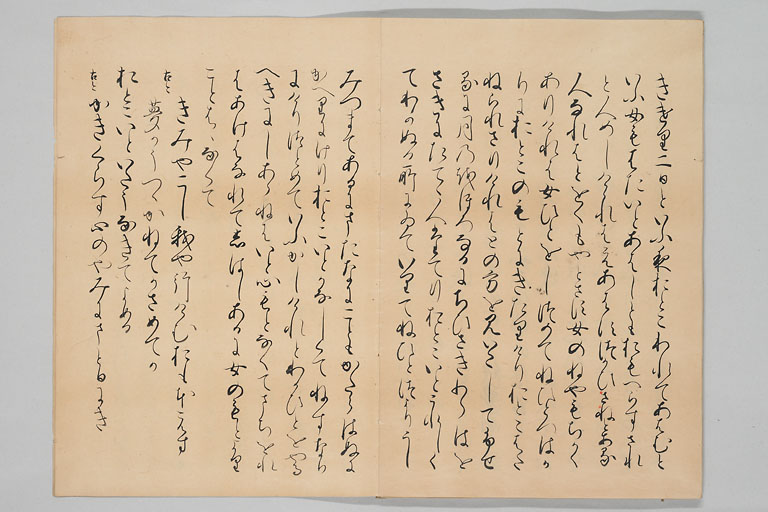 きけり二日といふ夜おとこわれてあはむと
いふ女もはたいとあはしともおもへらすされ
と人めしけけれはえあはすつかひさねとある
人なれはとをくもやとさす女のねやもちかく
ありけれは女ひとをしつめてねひとつはか
りにおとこのもとにきたりけりおとこはた
ねられさりけれはとの方を見いたしてふせ
るに月のおほろなるにちひさきわらはを
さきにたてゝ人たてりおとこいとうれしく
てわかぬる所にゐていりてねひとつよりうし
みつまてあるにまたなにこともかたらはぬに
かへりにけりおとこいとかなしくてねすなり
にけりつとめていふかしけれとわかひとをやる
へきにしあらねはいと心もとなくてまちをれ
はあけはなれてしはしあるに女のもとより
ことははなくて
きみやこし我や行けむおもほえす
夢かうつゝかねてかさめてか
おとこいといたうなきてよめる
かきくらす心のやみにまとひにき